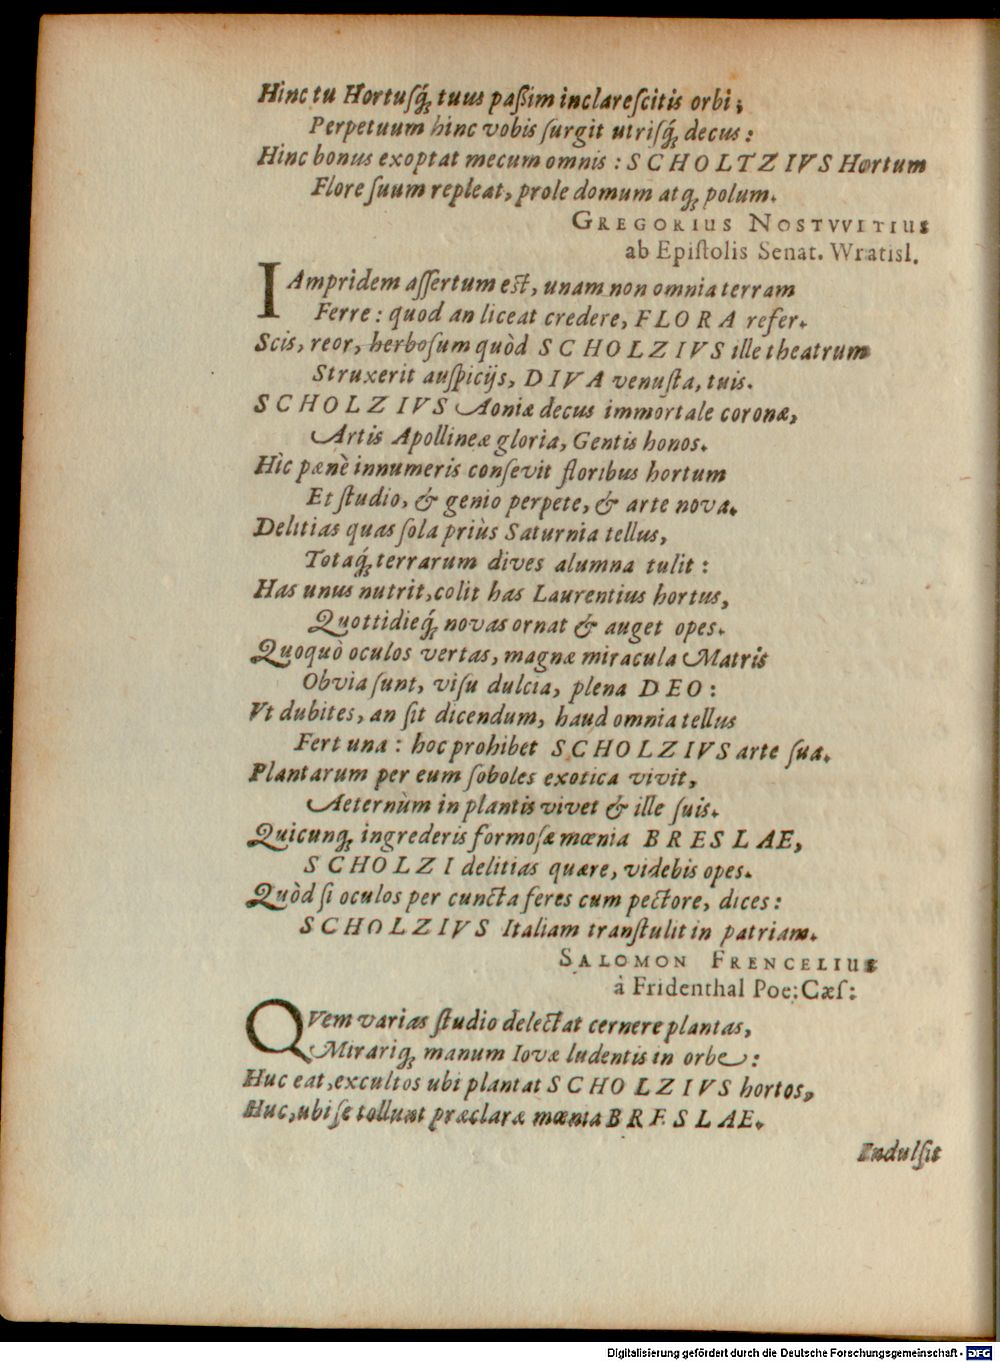 Hinc tu Hortuſq́ꝫ tuus paßim inclareſcitis orbi;
Perpetuum hinc vobis ſurgit utriſq́ꝫ decus:
Hinc bonus exoptat mecum omnis: SCHOLTZIVS Hortum
Flore ſuum repleat, prole domum atqꝫ polum.
GREGORIUS NOSTVVITIUS
ab Epiſtolis Senat. Wratisl.
IAmpridem aſſertum est, unam non omnia terram
Ferre: quod an liceat credere, FLORA refer.
Scis, reor, herboſum quòd SCHOLZIVS ille theatrum
Struxerit auſpicijs, DIVA venuſta, tuis.
SCHOLZIVS Aoniæ decus immortale coronæ,
Artis Apollineæ gloria, Gentis honos.
Hìc pænè innumeris conſevit floribus hortum
Et ſtudio, & genio perpete, & arte nova.
Delitias quas ſola priùs Saturnia tellus,
Totaq́ꝫ terrarum dives alumna tulit:
Has unus nutrit, colit has Laurentius hortus,
Quottidieq́ꝫ novas ornat & auget opes.
Quoquò oculos vertas, magnæ miracula Matris
Obvia ſunt, viſu dulcia, plena DEO:
Vt dubites, an ſit dicendum, haud omnia tellus
Fert una: hoc prohibet SCHOLZIVS arte ſua.
Plantarum per eum ſoboles exotica vivit,
Aeternùm in plantis vivet & ille ſuis.
Quicunqꝫ ingrederis formoſæ mœnia BRESLAE,
SCHOLZI delitias quære, videbis opes.
Quòd ſi oculos per cuncta feres cum pectore, dices:
SCHOLZIVS Italiam tranſtulit in patriam.
SALOMON FRENCELIUS
à Fridenthal Poe: Cæſ:
QVem varias ſtudio delectat cernere plantas,
Mirariqꝫ manum Iovæ ludentis in orbe:
Huc eat, excultos ubi plantat SCHOLZIVS hortos,
Huc, ubi ſe tollunt præclaræ mœnia BRESLAE.
Indulſit
Digitalisierung gefördert durch die Deutsche Forschungsgemeinschaft - DFG